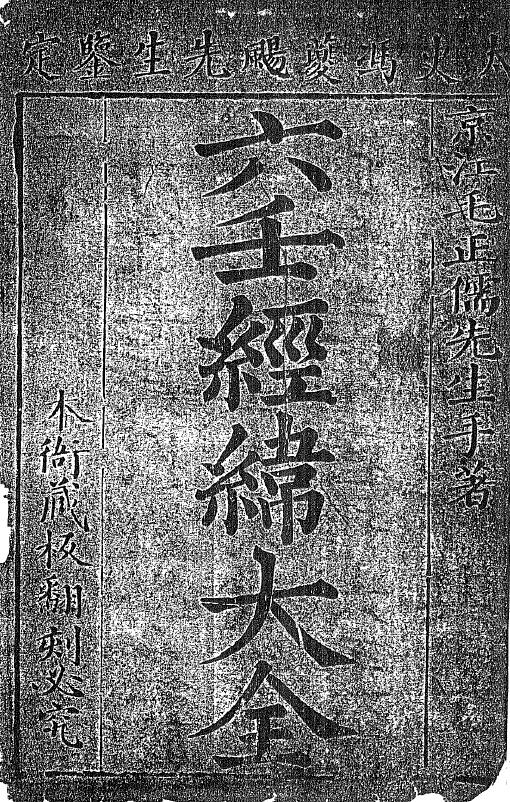 太史馮夔颺先生鑒定
京江毛正儒先生手著
六壬經緯大全
本衙藏板翻刻必究